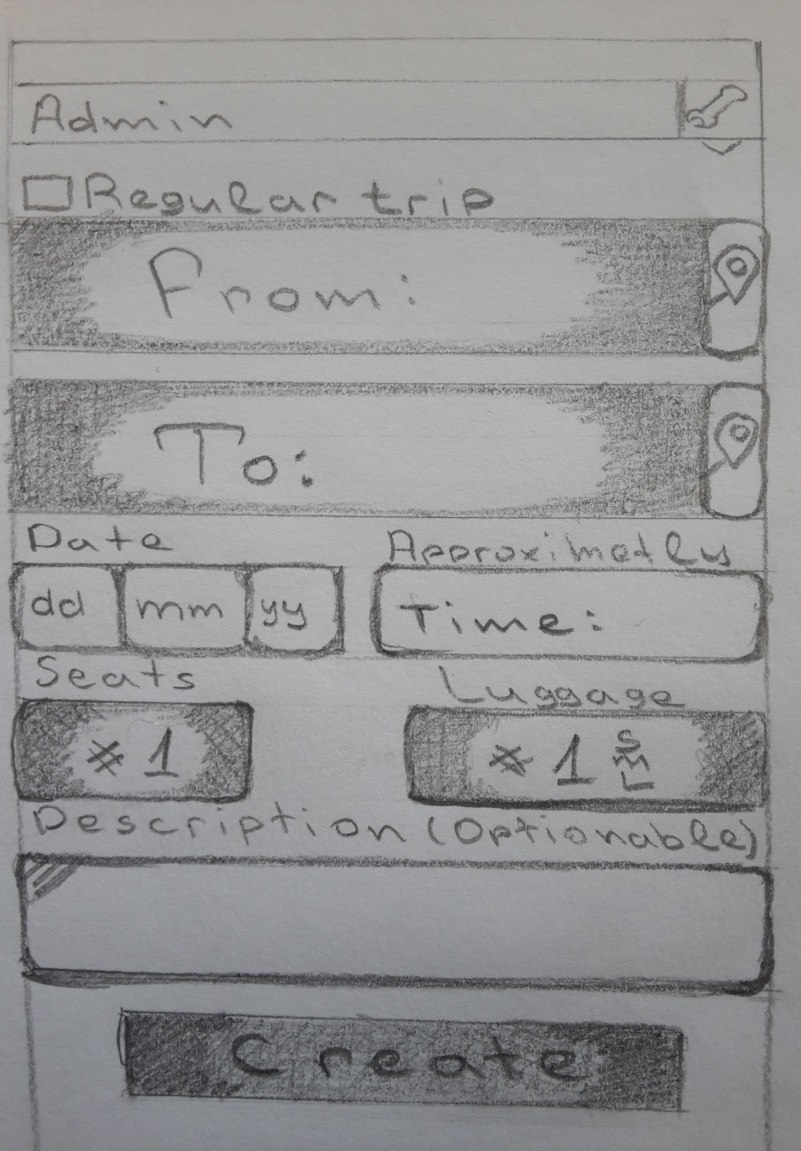 Admin
Regular trip
From:
To:
Date Approximatly
dd mm yy Time:
Seats Luggage
* 1 * 1 S M L
Description (Optionable)
Create